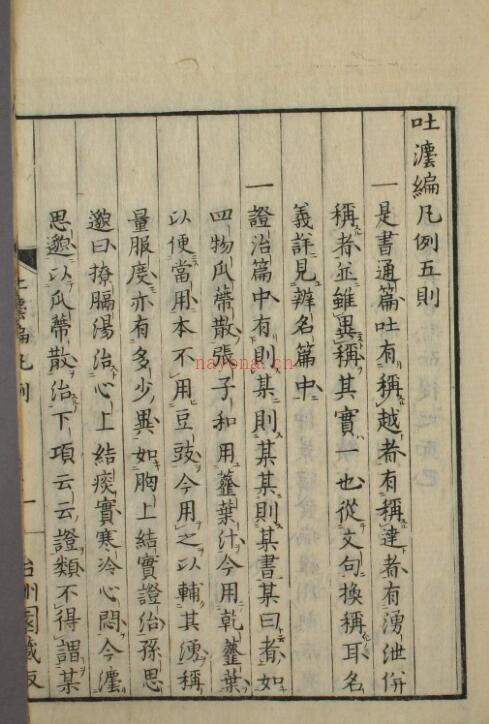 吐漊編凡例五則
一是書通篇吐有稱越者有稱達者有湧泄併
稱者並雖異稱其實一也從文句換稱耳名
義詳見辨名篇中
一證治篇中有則某則某某則某書某曰者如
四物瓜蔕散張子和用虀葉汁今用乾虀葉
以便當用本不用豆豉今用之以輔其湧稱
量服度亦有多少異如胸上結實證治孫思
邈曰撩膈湯治心上結痰實寒冷心悶今漊
思邈以瓜蔕散治下項云云證類不得謂某
編凡例
一
園藏板
nayona.cn